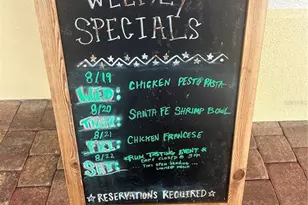 WEEKLY
SPECIALS
8/19
WED: CHICKEN PESTO PASTA
8/20
THUR: SANTA FE SHRIMP BOWL
8/21
FRI: CHICKEN FRANCESE
8/22
SAT: RUM TASTING EVENT &
CAFE CLOSED @ 3PM
RESERVATIONS REQUIRED